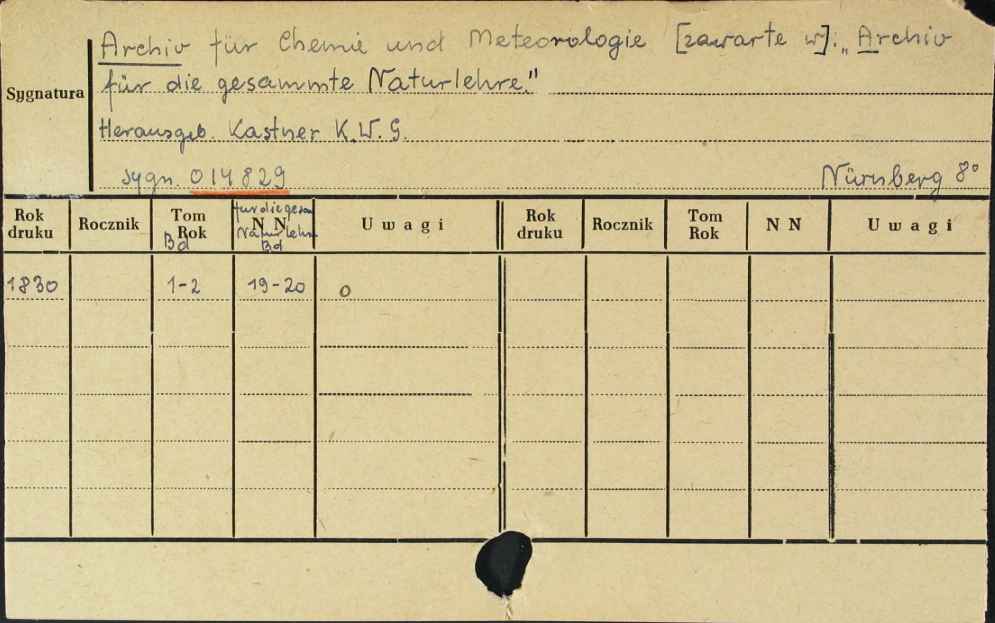 Archiv für Chemie und Meteorologie [zawarte w]: „Archiv
Sygnatura
für die gesammte Naturlehre."
Herausgeb. Kastner K.W.G.
sygn. 014829
Nürnberg 8°
Rok druku Rocznik Tom Rok N N Uwagi Rok druku Rocznik Tom Rok N N Uwagi
Bd
für die gesam
Naturlehre
Bd
1830 1-2 19-20 o